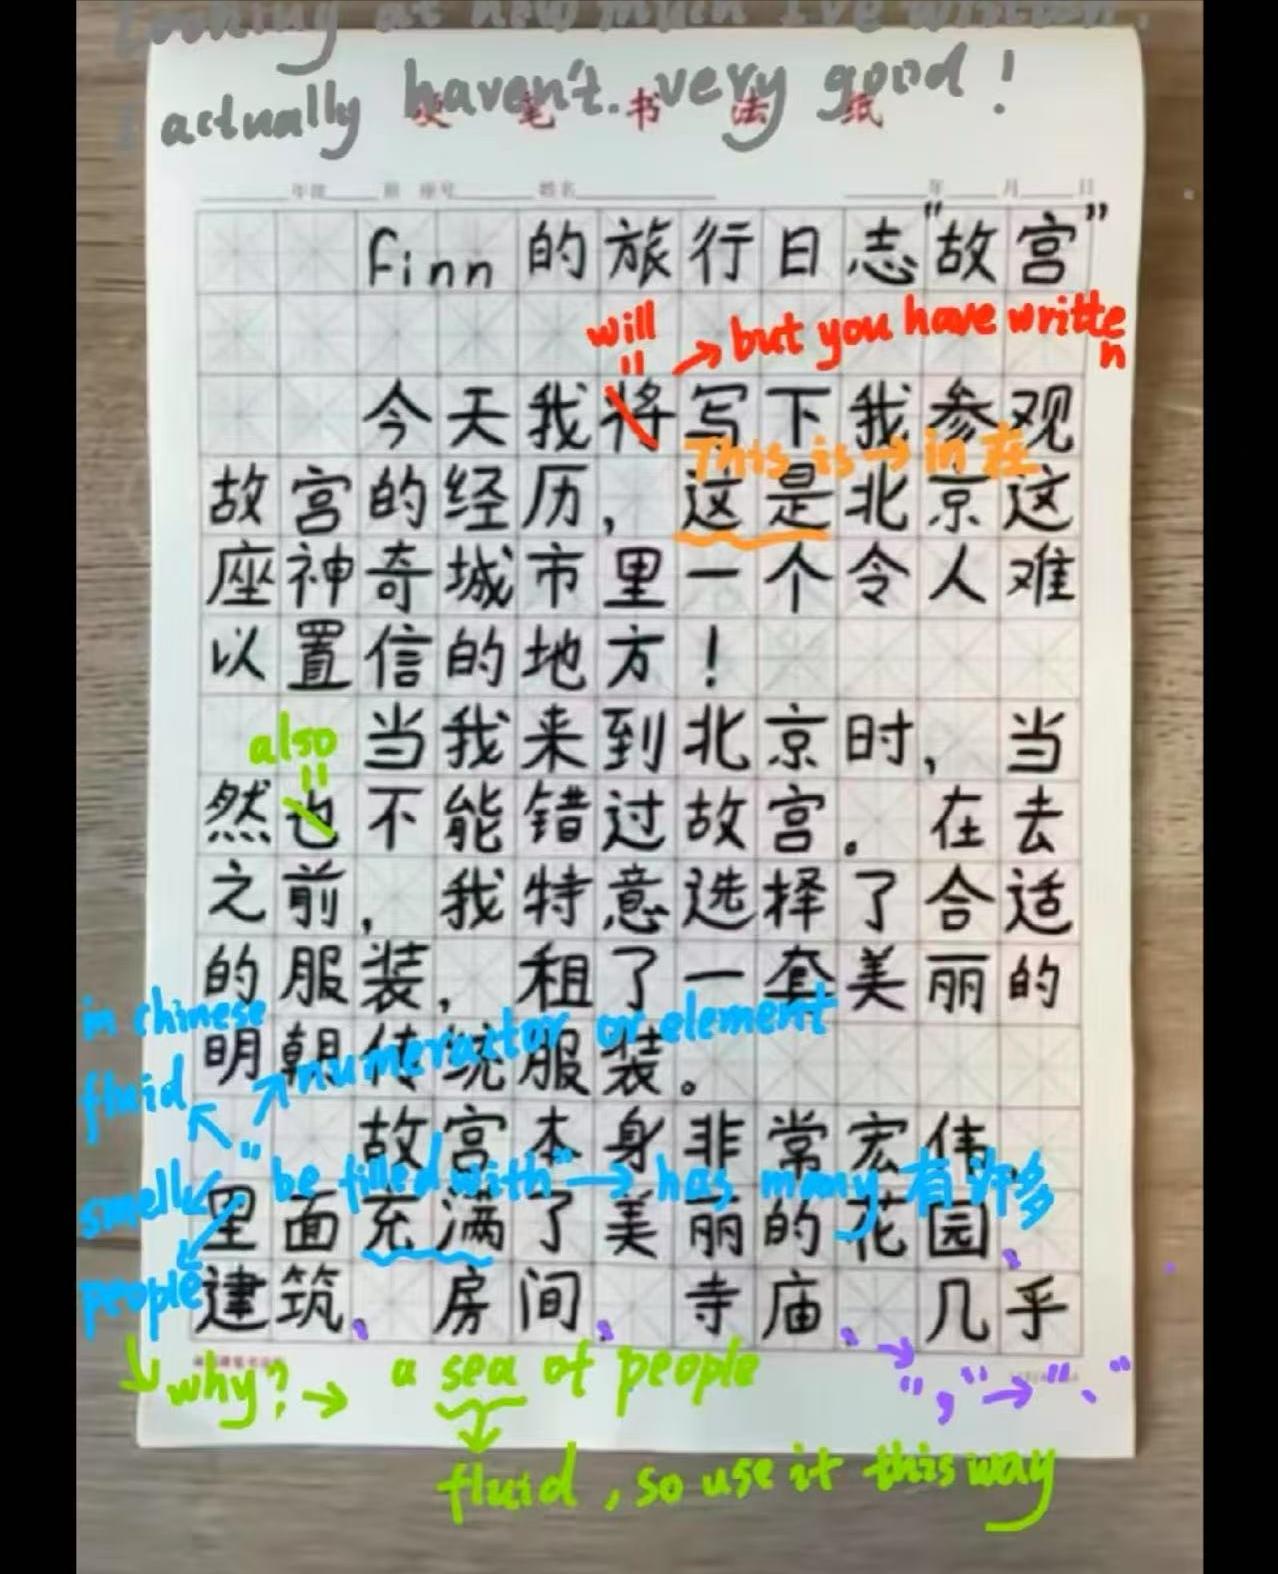 Looking at how much I've written,
I actually haven't. very good!
硬笔书法纸
年级 班 座号 姓名 年 月 日
Finn的旅行日志"故宫"
will
→ but you have written
今天我将写下我参观
This is → in 在
故宫的经历，这是北京这
座神奇城市里一个令人难
以置信的地方！
also
当我来到北京时，当
然也不能错过故宫。在去
之前，我特意选择了合适
的服装，租了一套美丽的
in chinese
numerator or element
明朝传统服装。
fluid
故宫本身非常宏伟，
"be filled with" → has many 有许多
smell
里面充满了美丽的花园、
people
建筑、房间、寺庙、几乎
"，" → "、"
why? → a sea of people
fluid, so use it this way